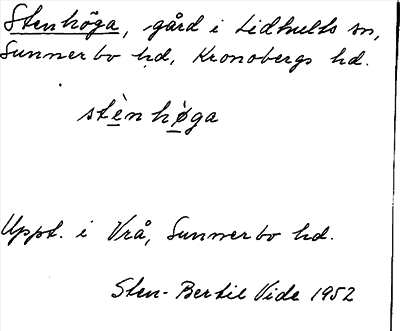 Stenhöga, gård i Lidhults sn,
Sunnerbo hd, Kronobergs hd.
stè̲nhø̲̀ga
Uppt. i Vrå, Sunnerbo hd.
Sten-Bertil Vide 1952